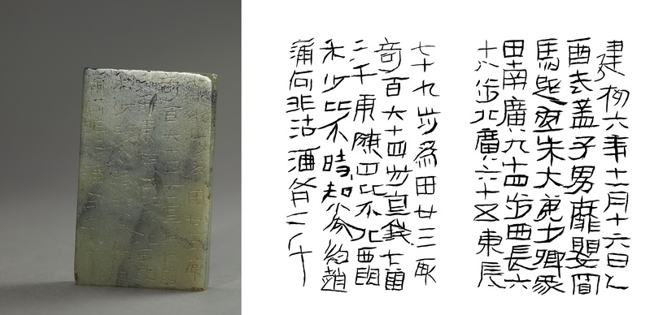 建初六年十一月十六日乙
酉武孟子男靡嬰買
馬起宜朱大弟少卿冢
田南廣九十四步西長六
十八步北廣六十五東長
七十九步為田廿三畝
奇百六十四步直錢十萬
二千東陳田比介北西南
朱少比介時知券約趙
滿何非沽酒各二千